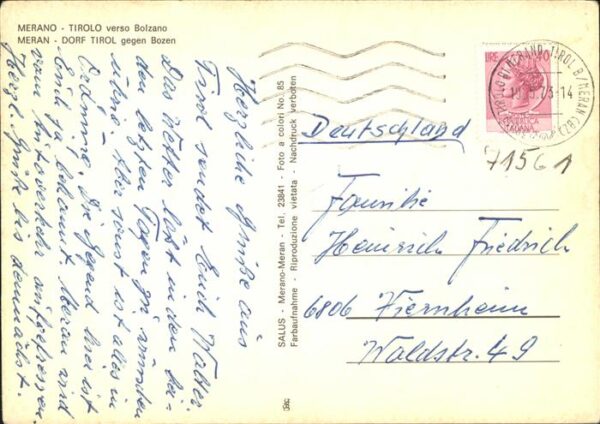 MERANO - TIROLO verso Bolzano
MERAN - DORF TIROL gegen Bozen
Herzliche Grüße aus
Tirol sendet Euch Walter.
Das Wetter läßt in den bei-
den letzten Tagen zu wünschen
übrig. Aber sonst ist alles in
Ordnung. Die Gegend hier ist
Euch ja bekannt. Meran wird
vom Autoverkehr aufgefressen.
Herzl. Grüße bis demnächst.
SALUS - Merano-Meran - Tel. 23841 - Foto a colori No. 85
Farbaufnahme - Riproduzione vietata - Nachdruck verboten
LIRE
TIROL B/MERAN (BZ)
73-14
71561
Deutschland
Familie
Heinrich Friedrich
6806 Viernheim
Waldstr. 49